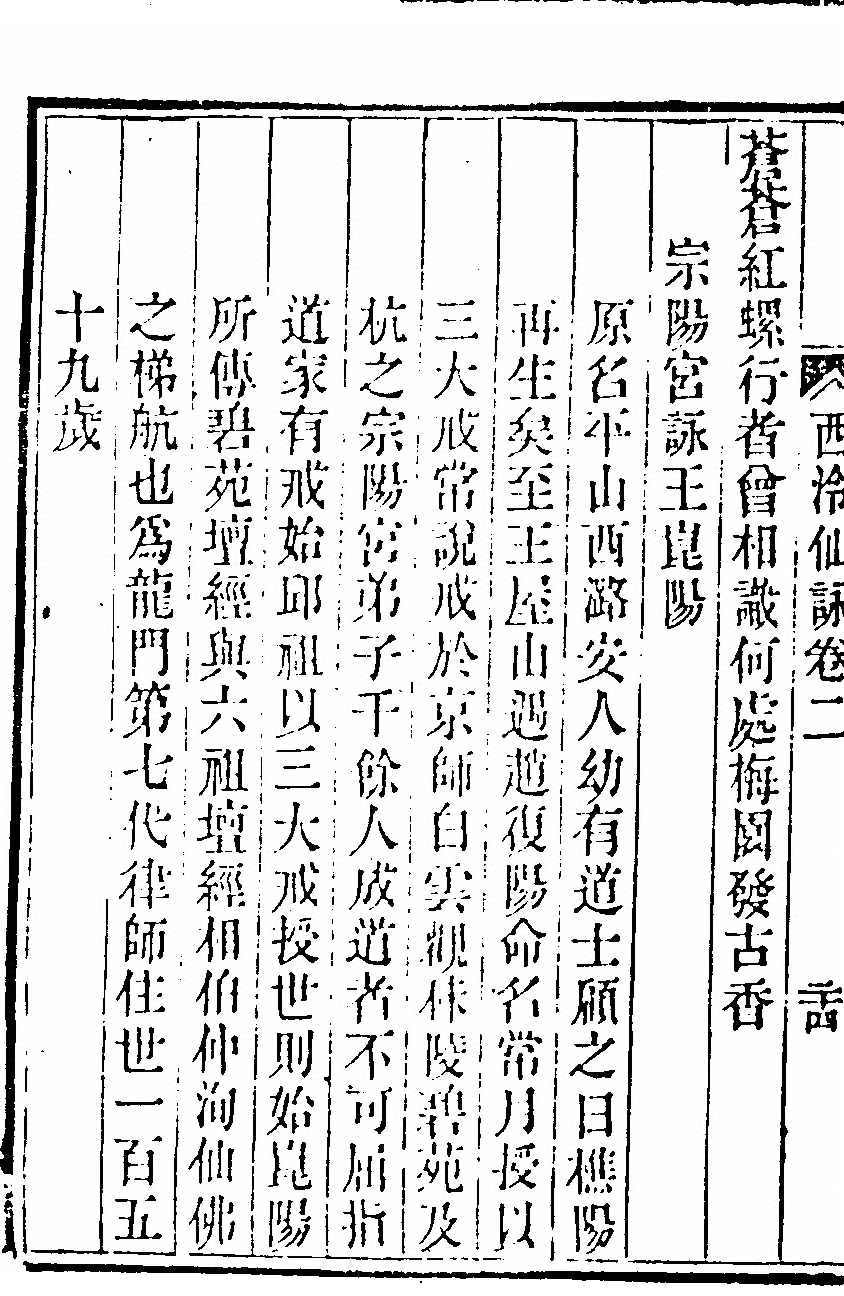 西泠仙詠卷二
蒼蒼紅螺行者曾相識何處梅園發古香
宗陽宮詠王崑陽
原名平山西潞安人幼有道士顧之曰樵陽
再生矣至王屋山遇趙復陽命名常月授以
三大戒常說戒於京師白雲觀秣陵碧苑及
杭之宗陽宮弟子千餘人成道者不可屈指
道家有戒始邱祖以三大戒授世則始崑陽
所傳碧苑壇經與六祖壇經相伯仲洵仙佛
之梯航也爲龍門第七代律師住世一百五
十九歲